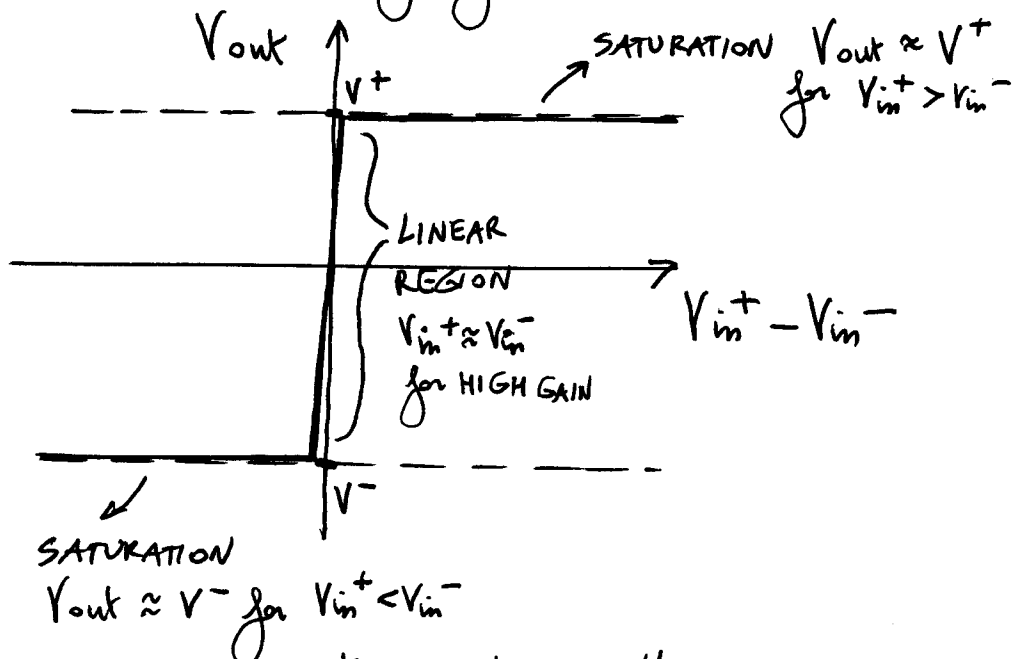 Vout
SATURATION Vout ≈ V⁺
for Vin⁺ > Vin⁻
V⁺
LINEAR
REGION
Vin⁺ ≈ Vin⁻
for HIGH GAIN
Vin⁺ – Vin⁻
V⁻
SATURATION
Vout ≈ V⁻ for Vin⁺ < Vin⁻